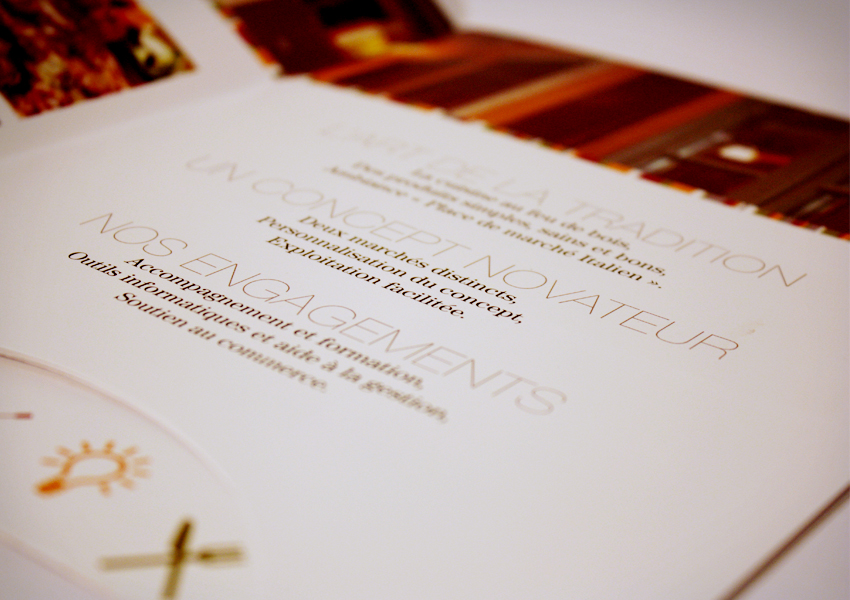 L'ART DE LA TRADITION
La cuisine au feu de bois,
Des produits simples, sains et bons,
Ambiance « Place de marché Italien ».
UN CONCEPT NOVATEUR
Deux marchés distincts,
Personnalisation du concept,
Exploitation facilitée.
NOS ENGAGEMENTS
Accompagnement et formation,
Outils informatiques et aide à la gestion,
Soutien au commerce.